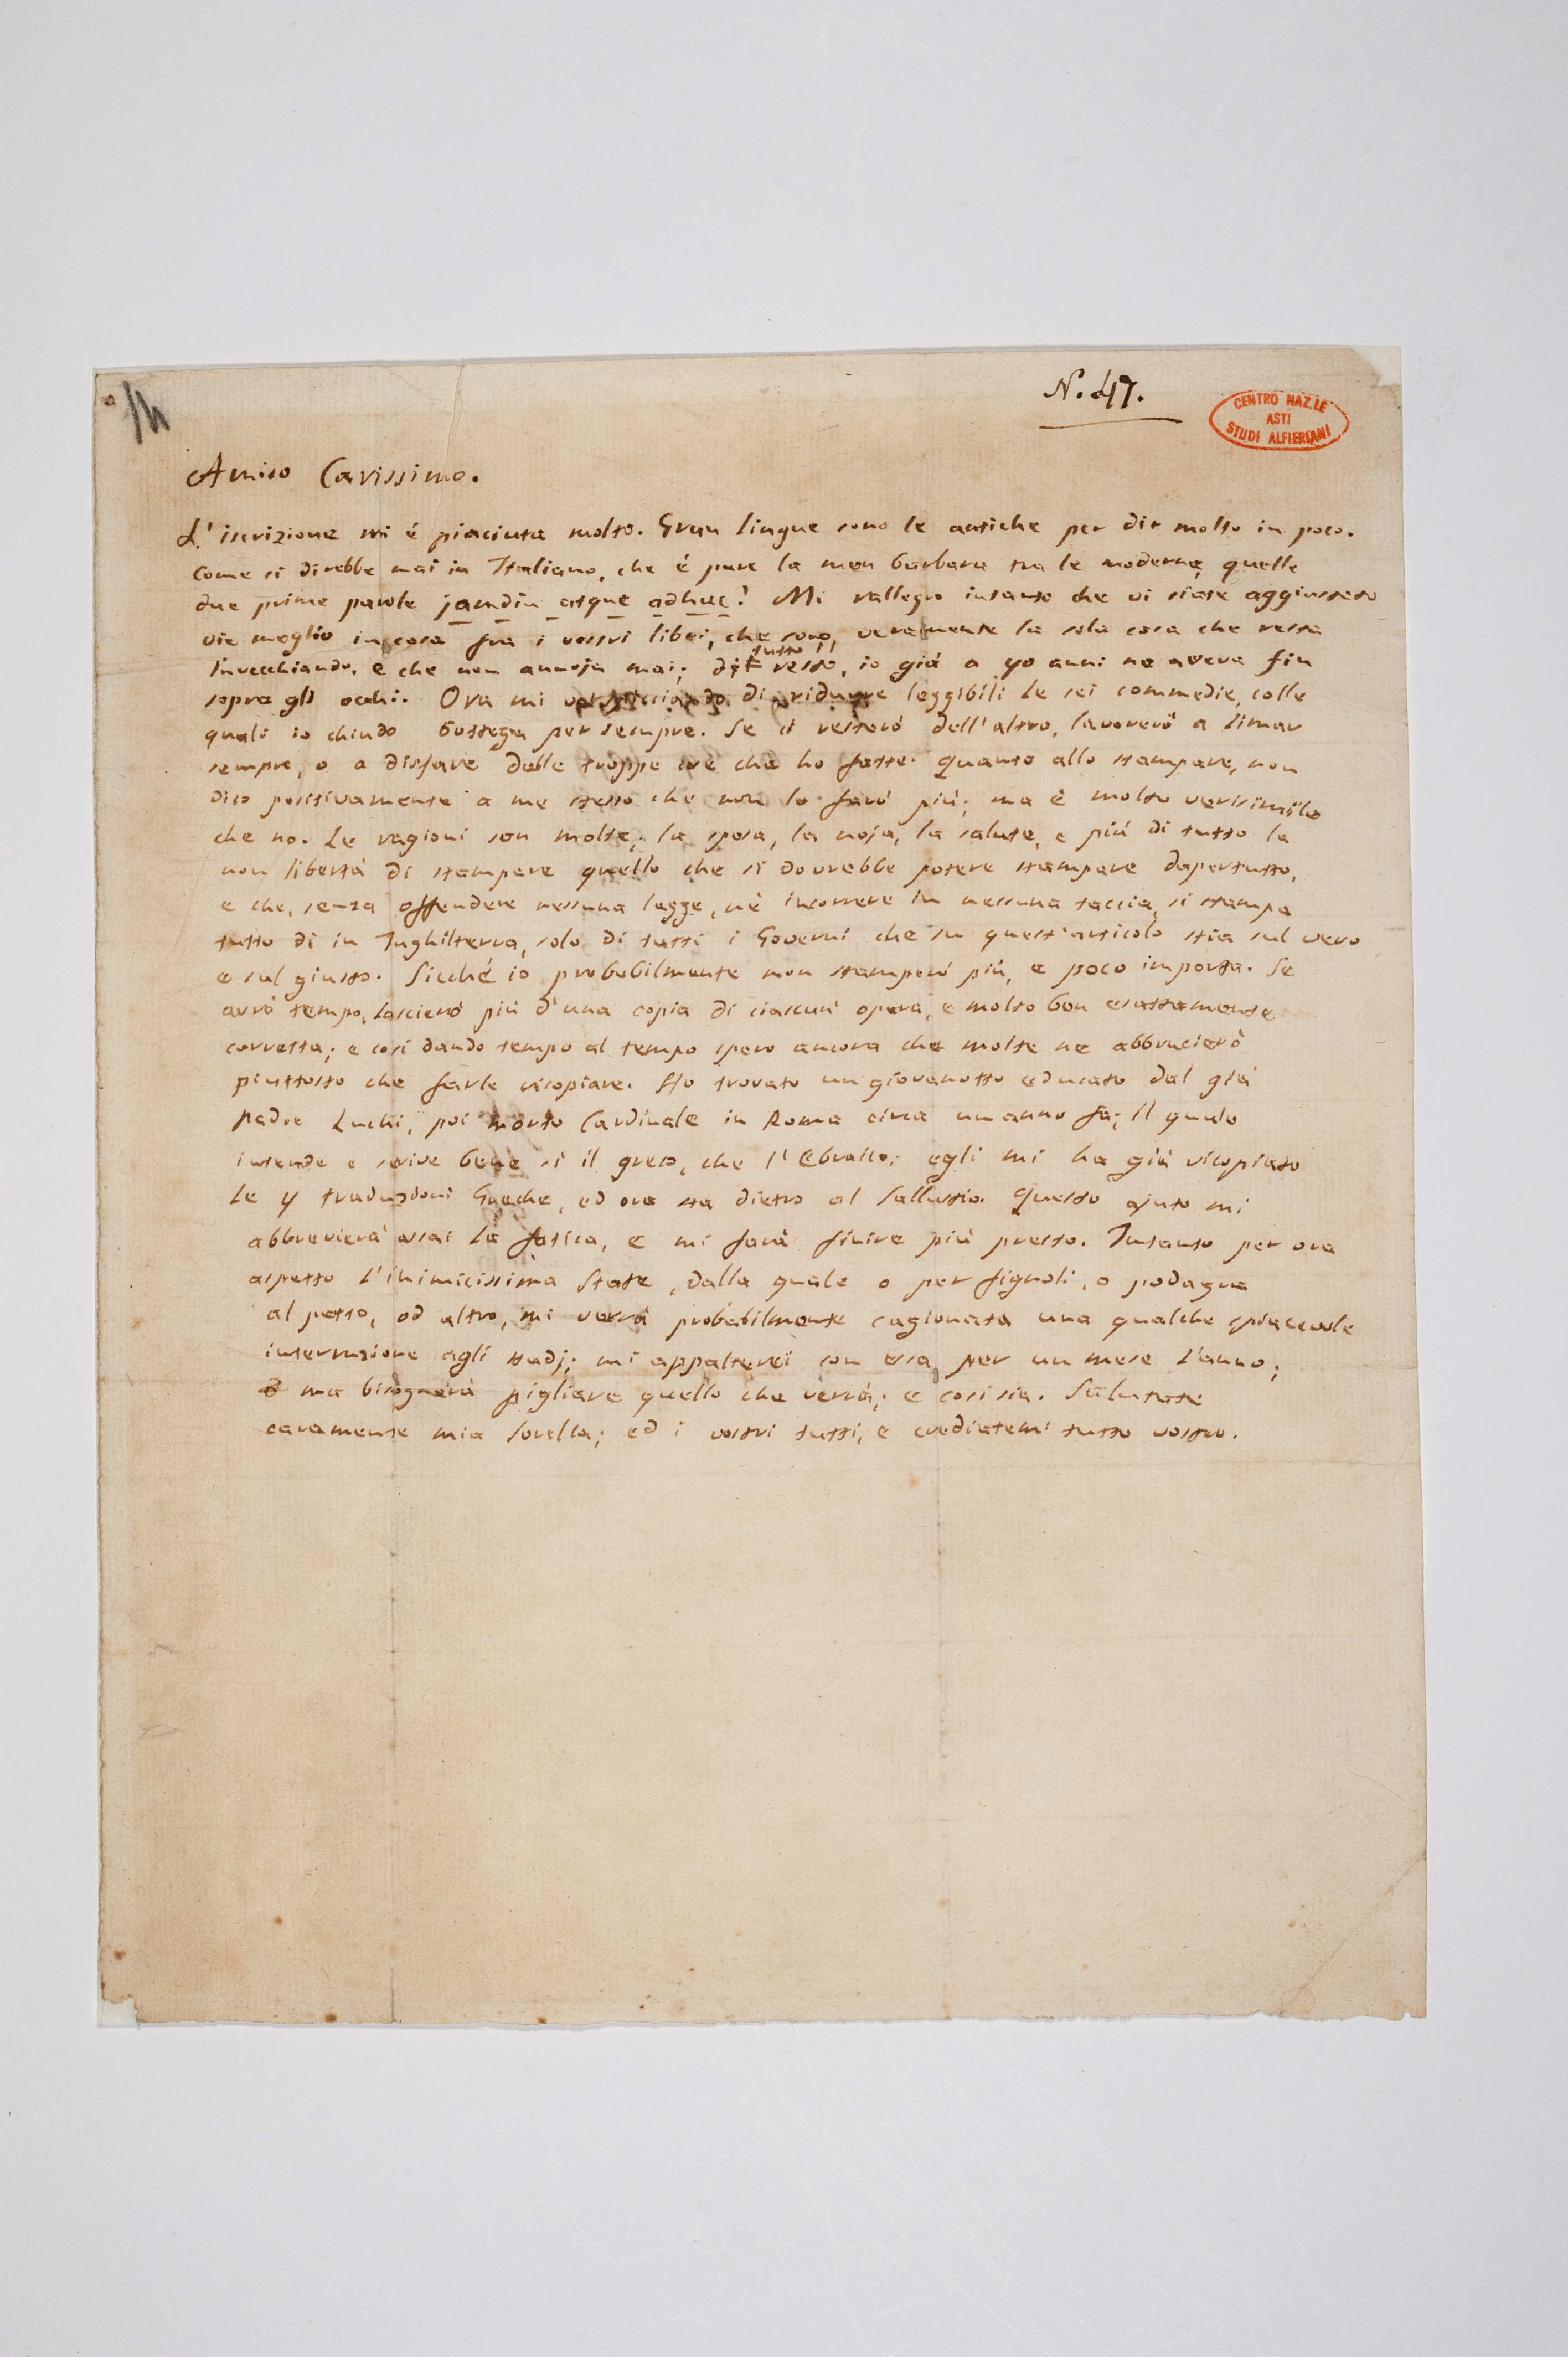 14
N. 47.
CENTRO NAZ.LE
ASTI
STUDI ALFIERIANI
Amico Carissimo.
L'iscrizione mi é piaciuta molto. Gran lingue sono le antiche per dir molto in poco.
Come si direbbe mai in Italiano, che é pure la men barbara tra le moderne, quelle
due prime parole jamdiu atque adhuc? Mi rallegro intanto che vi siate aggiustato
vie meglio in casa fra i vostri libri, che sono veramente la sola cosa che resta
invecchiando, e che non annoja mai; di tutto il resto, io già a 40 anni ne aveva fin
sopra gli occhi. Ora mi vo spicciando di ridurre leggibili le sei commedie, colle
quali io chiudo bottega per sempre. Se ci resterò dell'altro, lavorerò a limar
sempre, o a disfare delle troppe cose che ho fatte. Quanto allo stampare, non
dico positivamente a me stesso che non lo farò più; ma è molto verisimile
che no. Le ragioni son molte; la spesa, la noja, la salute, e più di tutto la
non libertà di stampare quello che si dovrebbe potere stampare dapertutto,
e che, senza offendere nessuna legge, nè incorrere in nessuna taccia, si stampa
tutto dì in Inghilterra, solo di tutti i Governi che su quest'articolo stia sul vero
e sul giusto. Sicché io probabilmente non stamperò più, e poco importa. Se
avrò tempo, lascierò più d'una copia di ciascun' opera, e molto ben esattamente
corretta; e così dando tempo al tempo spero ancora che molte ne abbrucierò
piuttosto che farle ricopiare. Ho trovato un giovanotto educato dal già
Padre Luchi, poi morto Cardinale in Roma circa un anno fa; il quale
intende e scrive bene sì il greco, che l'Ebraico; egli mi ha già ricopiato
le 4 traduzioni Greche, ed ora sta dietro al Sallustio. Questo ajuto mi
abbrevierà assai la fatica, e mi farà finire più presto. Intanto per ora
aspetto l'inimicissima State, dalla quale o per fignoli, o podagra
al petto, od altro, mi verrà probabilmente cagionata una qualche spiacevole
interruzione agli studj; mi appalterei con essa per un mese l'anno;
ma bisognerà pigliare quello che verrà; e così sia. Salutate
caramente mia Sorella; ed i vostri tutti, e crediatemi tutto vostro.